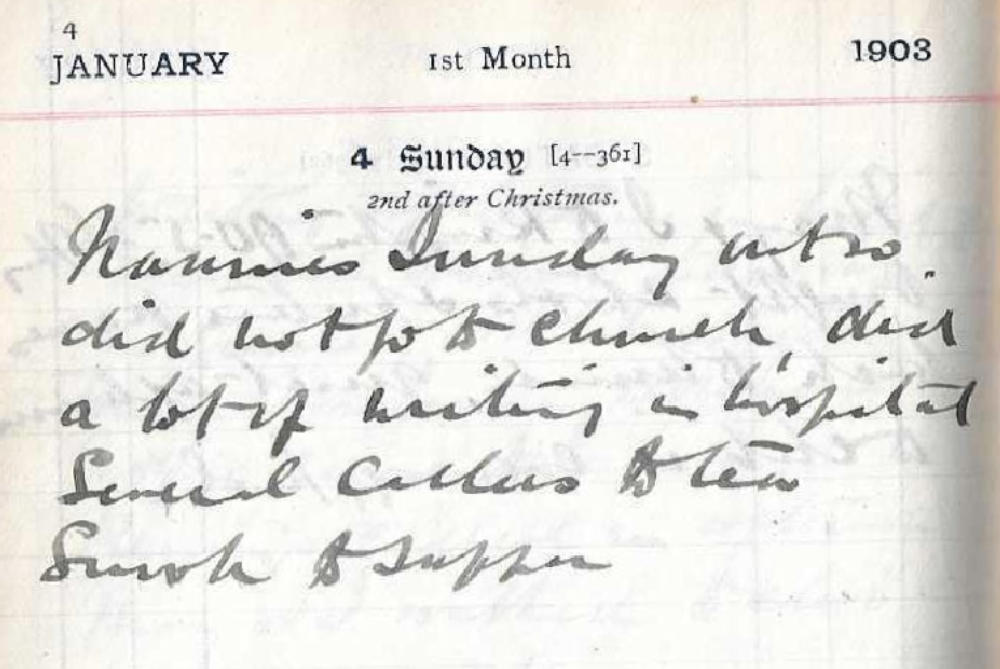 4
JANUARY 1st Month 1903
4 Sunday [4—361]
2nd after Christmas.
Nannies Sunday out so
did not go to church, did
a lot of writing in hospital
Several Callers to tea
to supper